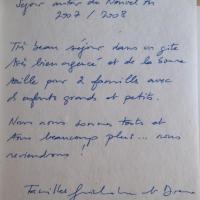 Séjour autour du Nouvel An
2007 / 2008
Très beau séjour dans un gîte
très bien agencé et de la bonne
taille pour 2 familles avec
enfants grands et petits.
Nous nous sommes tous et
plus beaucoup plus... nous
reviendrons !
Familles et